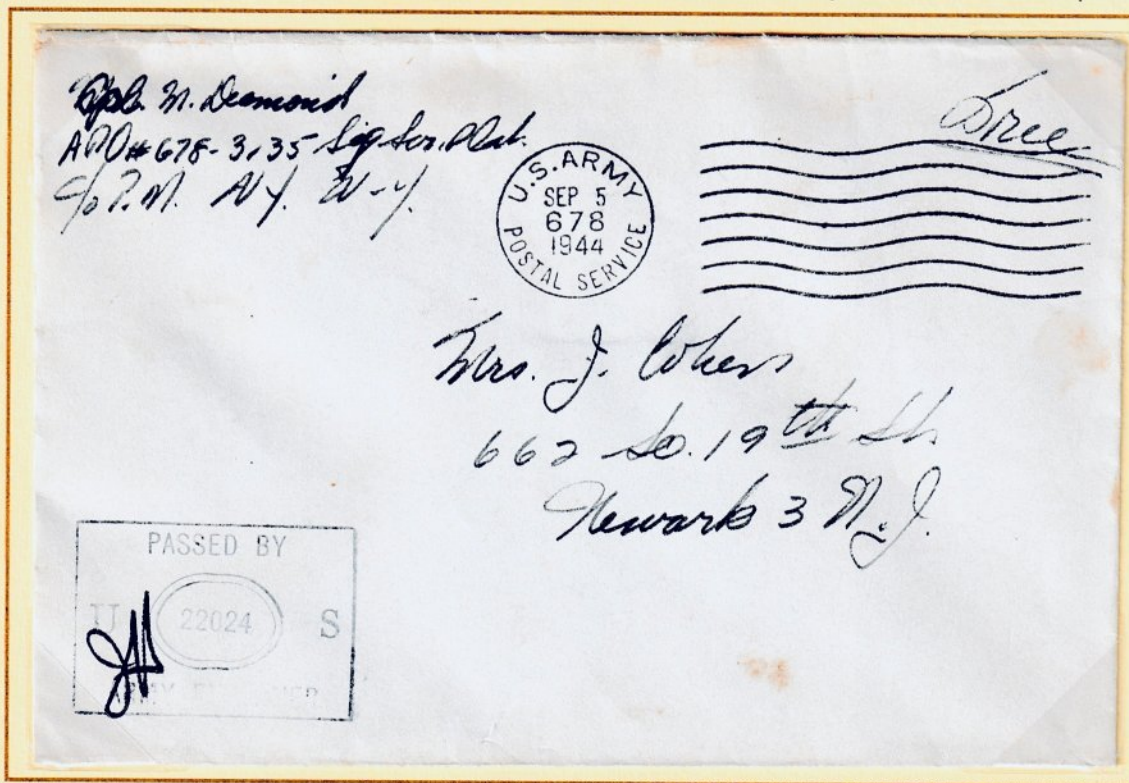 Cpl. N. Diamond
APO # 678 - 3135 Sig. Ser. Plat.
c/o P.M. N.Y. N-Y.
Free
U.S. ARMY
SEP 5
678
1944
POSTAL SERVICE
Mrs. J. Cohen
662 So. 19th St.
Newark 3 N.J.
PASSED BY
U 22024 S
ARMY EXAMINER